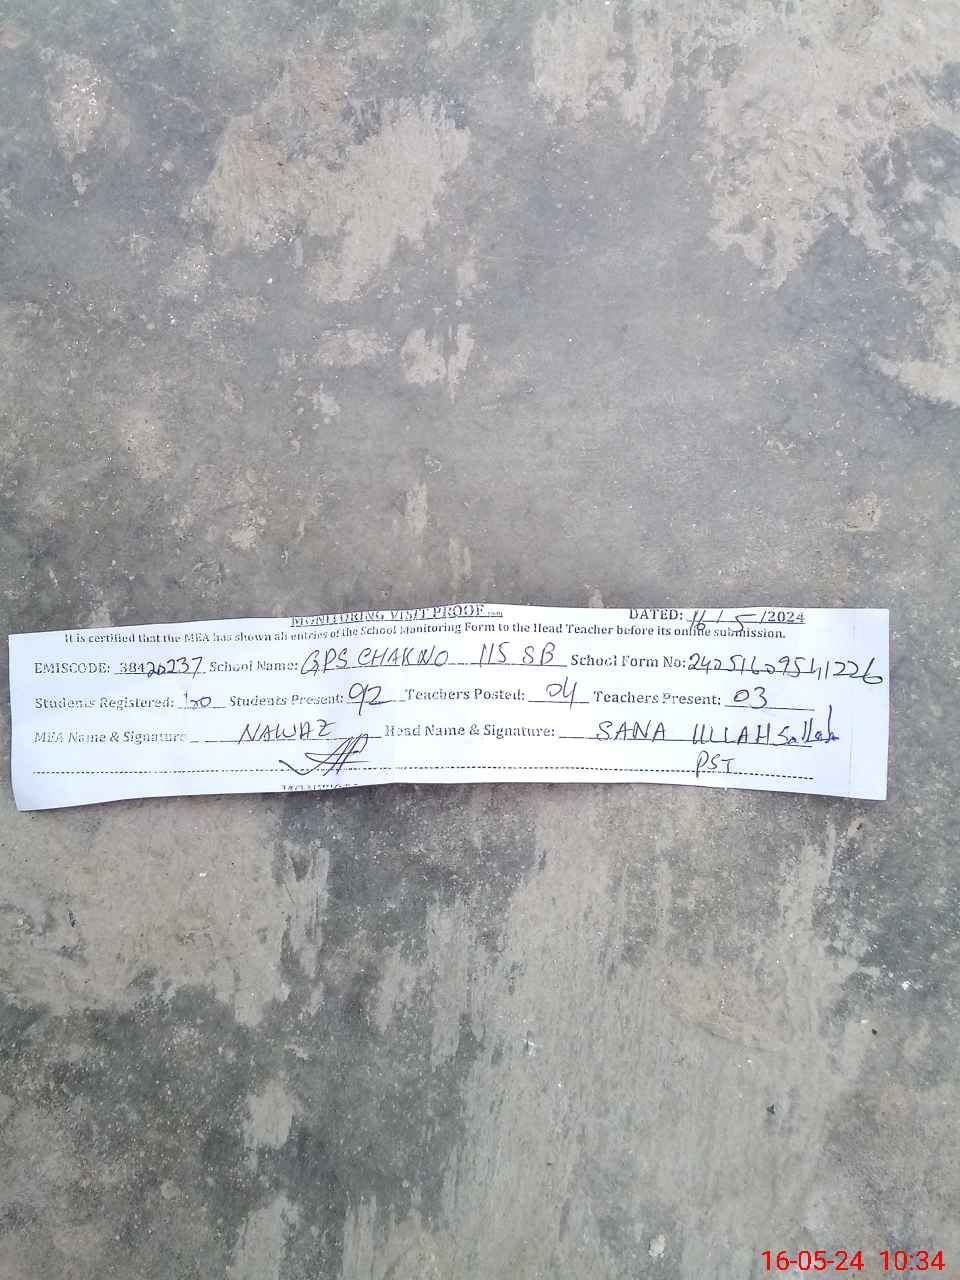 MONITORING VISIT PROOF DATED: 16/5/2024
It is certified that the MEA has shown all entries of the School Monitoring Form to the Head Teacher before its online submission.
EMISCODE: 38420237 School Name: GPS CHAK NO 115 SB School Form No: 24051609541226
Students Registered: 120 Students Present: 92 Teachers Posted: 04 Teachers Present: 03
MEA Name & Signature NAWAZ Head Name & Signature: SANA ULLAH
PST
16-05-24 10:34